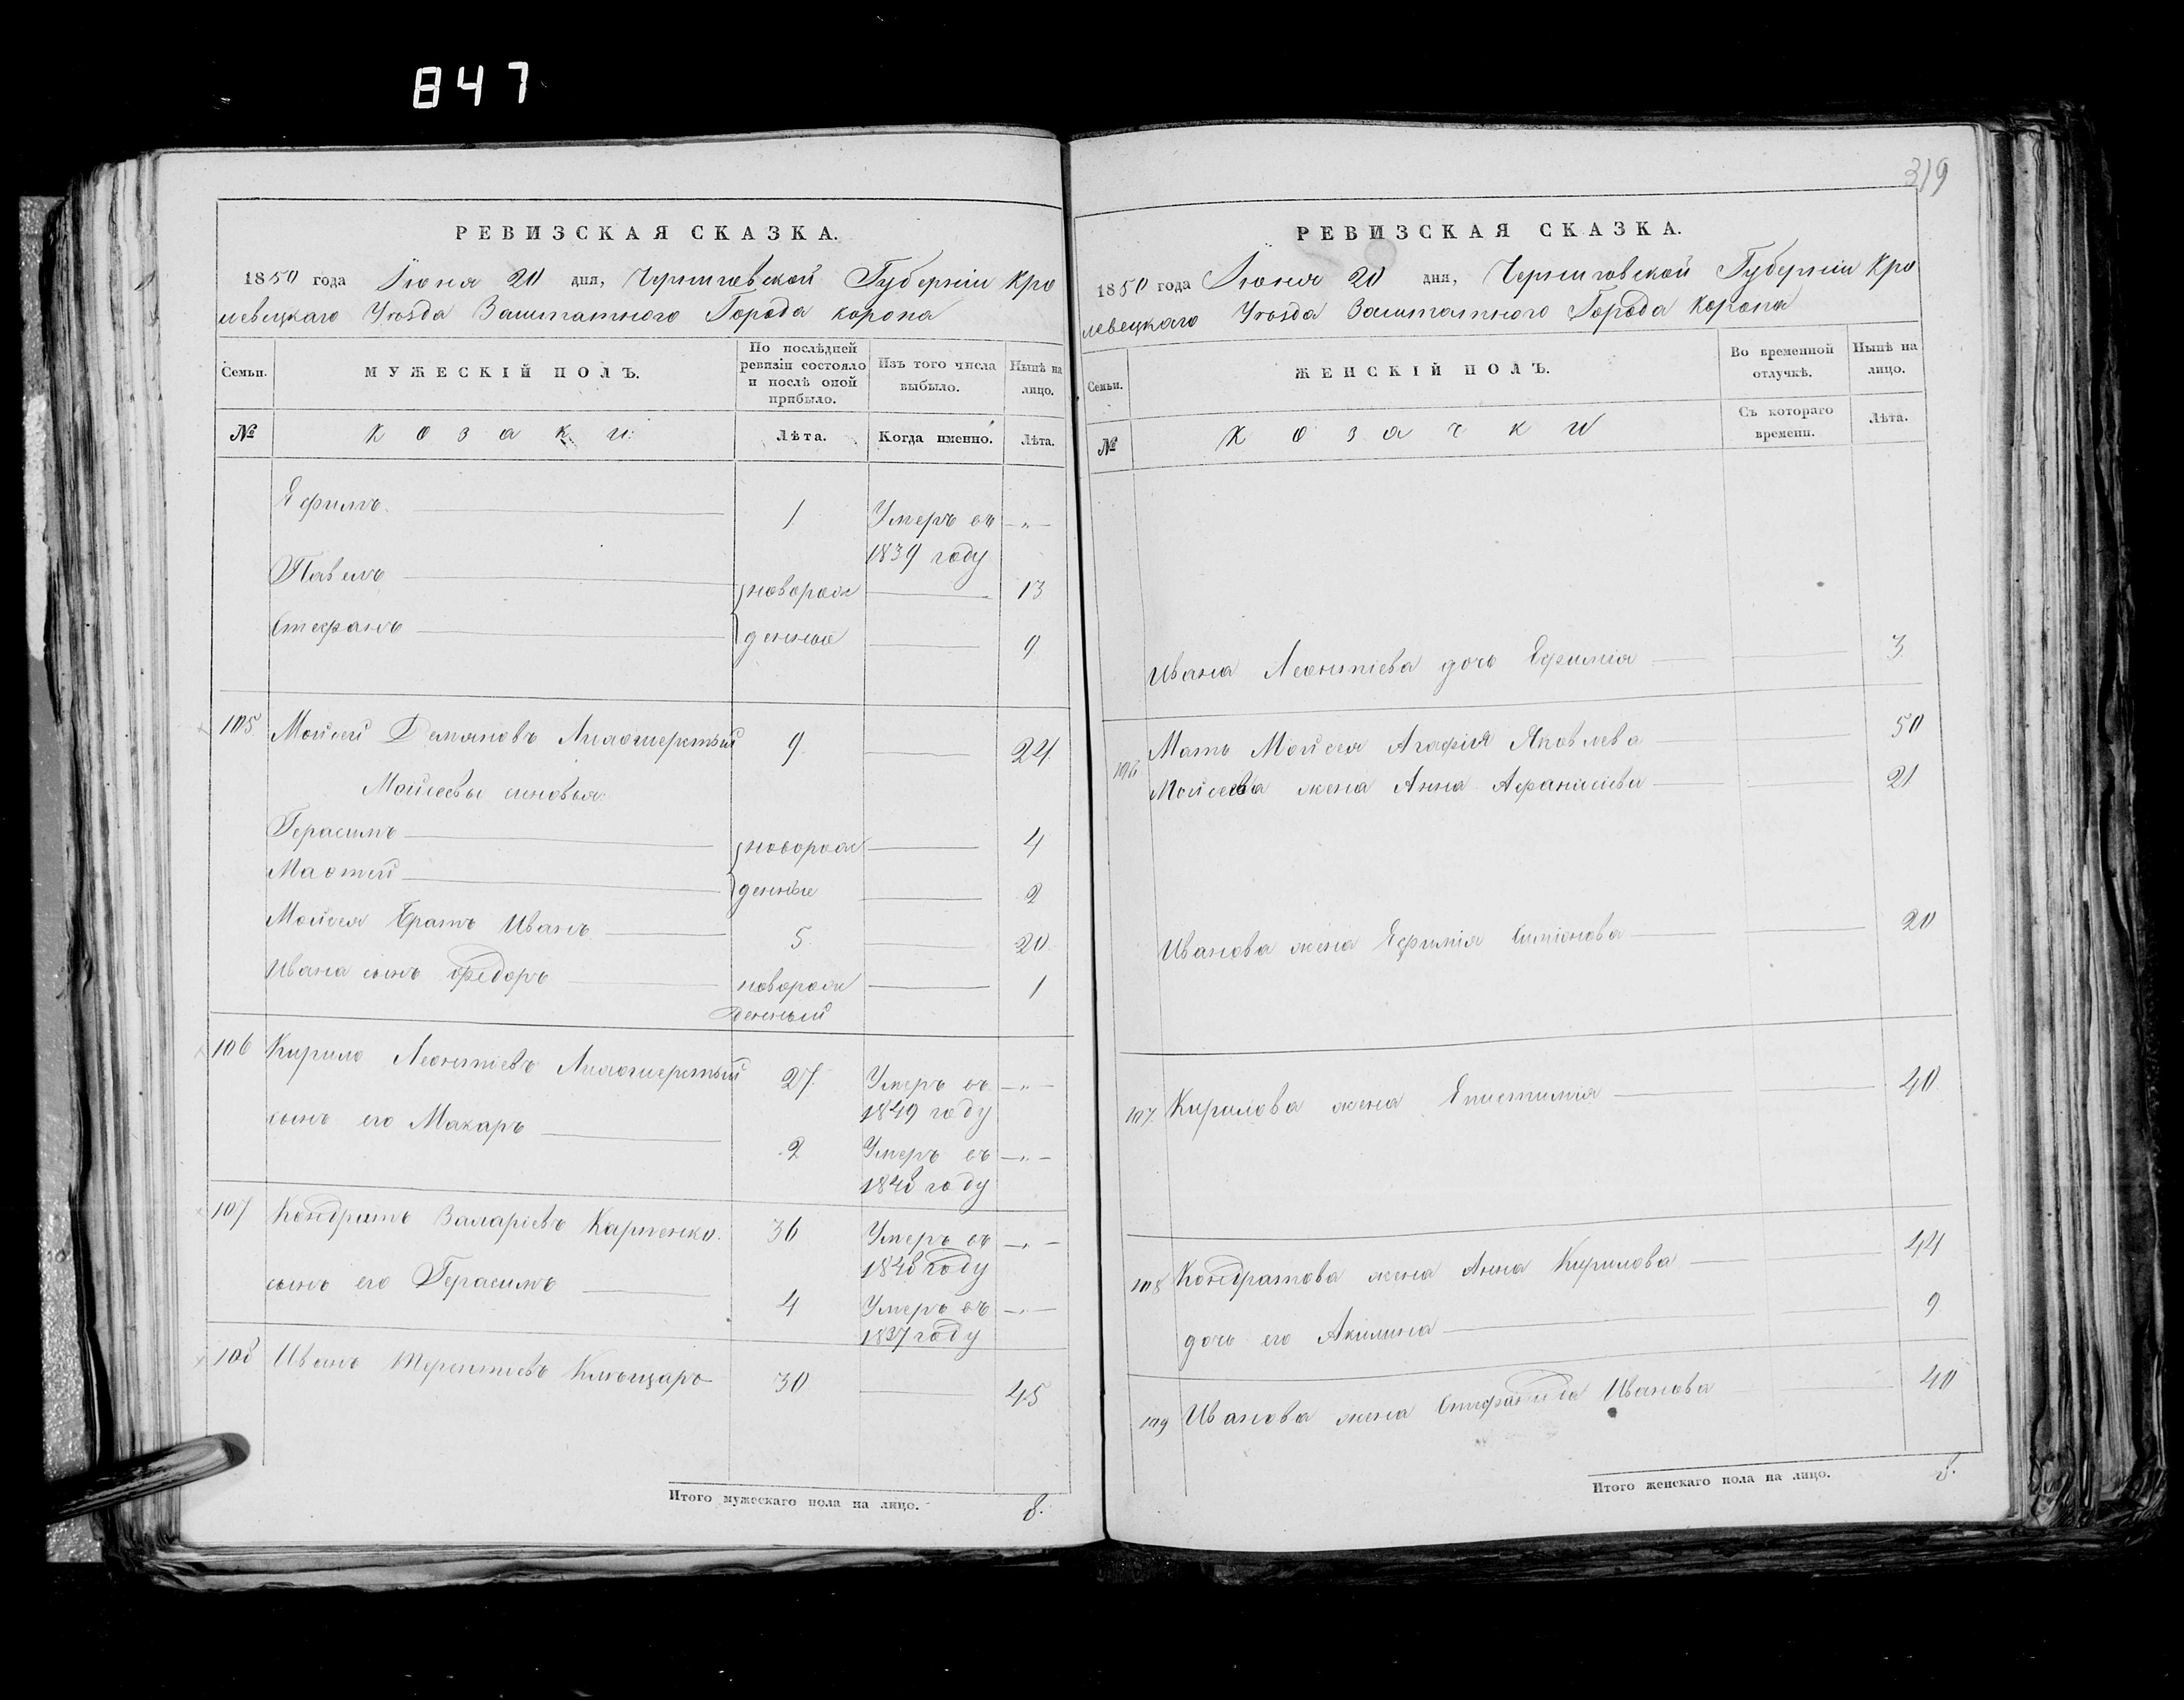 847
319
РЕВИЗСКАЯ СКАЗКА.
1850 года Июня 20 дня, Черниговской Губерніи Кро
левецкаго Уѣзда Заштатного Города Коропа
Семьи. МУЖЕСКІЙ ПОЛЪ. По послѣдней ревизіи состояло и послѣ оной прибыло. Изъ того числа выбыло. Нынѣ на лицо.
№ Козаки: Лѣта. Когда именно. Лѣта.
Ефимъ 1 Умеръ въ —„—
1839 году
Павелъ новорож 13
Стефанъ денные 9
105 Мойсей Демяновъ 9 24
Мойсеевы сыновья
Герасимъ новорож 4
Матвей денные 2
Мойсея Братъ Иванъ 5 20
Ивана сынъ Федоръ новорож 1
денный
106 Кирило Леонтіевъ 27 Умеръ въ —„—
1849 году
сынъ его Макаръ 2 Умеръ въ —„—
1848 году
107 Кондратъ Карпенко. 36 Умеръ въ —„—
1848 году
сынъ его Герасимъ 4 Умеръ въ —„—
1837 году
108 Иванъ Терентиевъ Ключаръ 30 45
Итого мужескаго пола на лицо. 8.
РЕВИЗСКАЯ СКАЗКА.
1850 года Июня 20 дня, Черниговской Губерніи Кро
левецкаго Уѣзда Заштатного Города Коропа
Семьи. ЖЕНСКІЙ ПОЛЪ. Во временной отлучкѣ. Нынѣ на лицо.
№ Козачки Съ котораго времени. Лѣта.
Ивана Леонтіева дочь Ефимія 3
106 Мать Мойсея Агафія Яковлева 50
Мойсеева жена Анна Афанасіева 21
Иванова жена Ефимія Симіонова 20
107. Кирилова жена Епистимія 40
108 Кондратова жена Анна Кирилова 44
дочь его Акилина 9
109 Иванова жена Стефанида Иванова 40
Итого женскаго пола на лицо. 8.